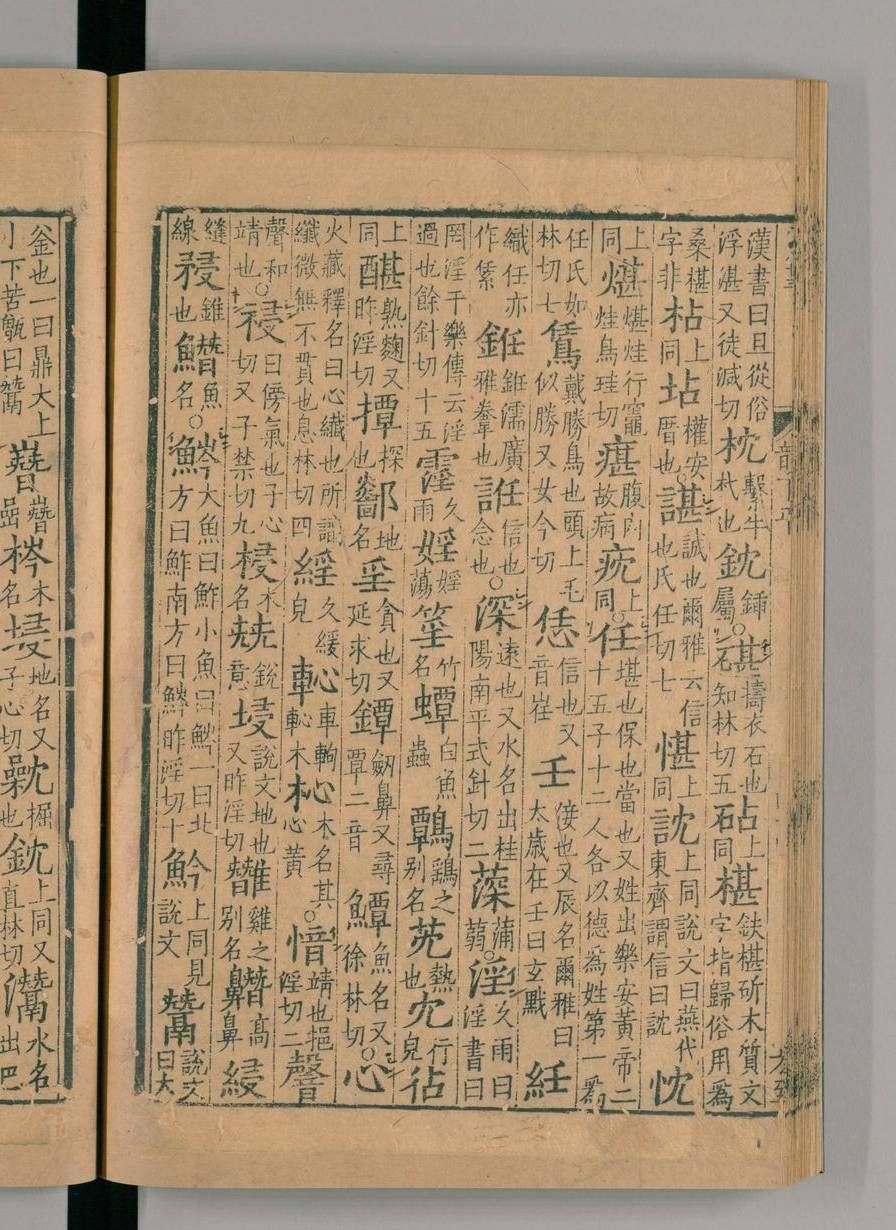 漢書曰且從俗浮湛又徒減切枕繫牛杙也鈂鍤屬○碪擣衣石也知林切五砧上同椹鈇椹斫木質文字指歸俗用爲
桑椹字非枮上同㘱權安厝也○諶誠也爾雅云信也氏任切七愖上同訦上同說文曰燕代東齊謂信曰訦忱
上同煁煁烓行竈烓烏珪切㽎腹內故病上同○任堪也保也當也又姓出樂安黃帝二十五子十二人各以德爲姓第一爲
任氏如林切七鵀戴勝鳥也頭上毛似勝又女今切恁信也又音荏壬佞也又辰名爾雅曰太歲在壬曰玄黓紝
織任亦作絍銋銋濡廣雅韏也信也念也○深遠也又水名出桂陽南平式針切二蒲蒻○淫久雨曰淫書曰
罔淫于樂傳云淫過也餘針切十五霪久雨婬婬蕩竹名蟫白魚蟲鷣鷂之別名熱也冘行皃
上同熟麴又昨淫切撢探也地名㸒貪也又延求切鐔劒鼻又尋覃二音鱏魚名又徐林切○心
火藏釋名曰心纖也所識纖微無不貫也息林切四久緩皃車軥木杺木名其心黃○愔靖也挹淫切二韾
聲和靖也○祲日傍氣也子心切又子禁切九梫木名兓銳意埐說文地也又昨淫切雞之別名高鼻綅
縫線祲錐也魚名○大魚曰鮓小魚曰䰼一曰北方曰鮓南方曰䰼昨淫切十魿上同見說文鬵說文曰大
釜也一曰鼎大上小下若甑曰鬵木名埐地名又子心切掘也鈂上同又直林切灊水名出巴